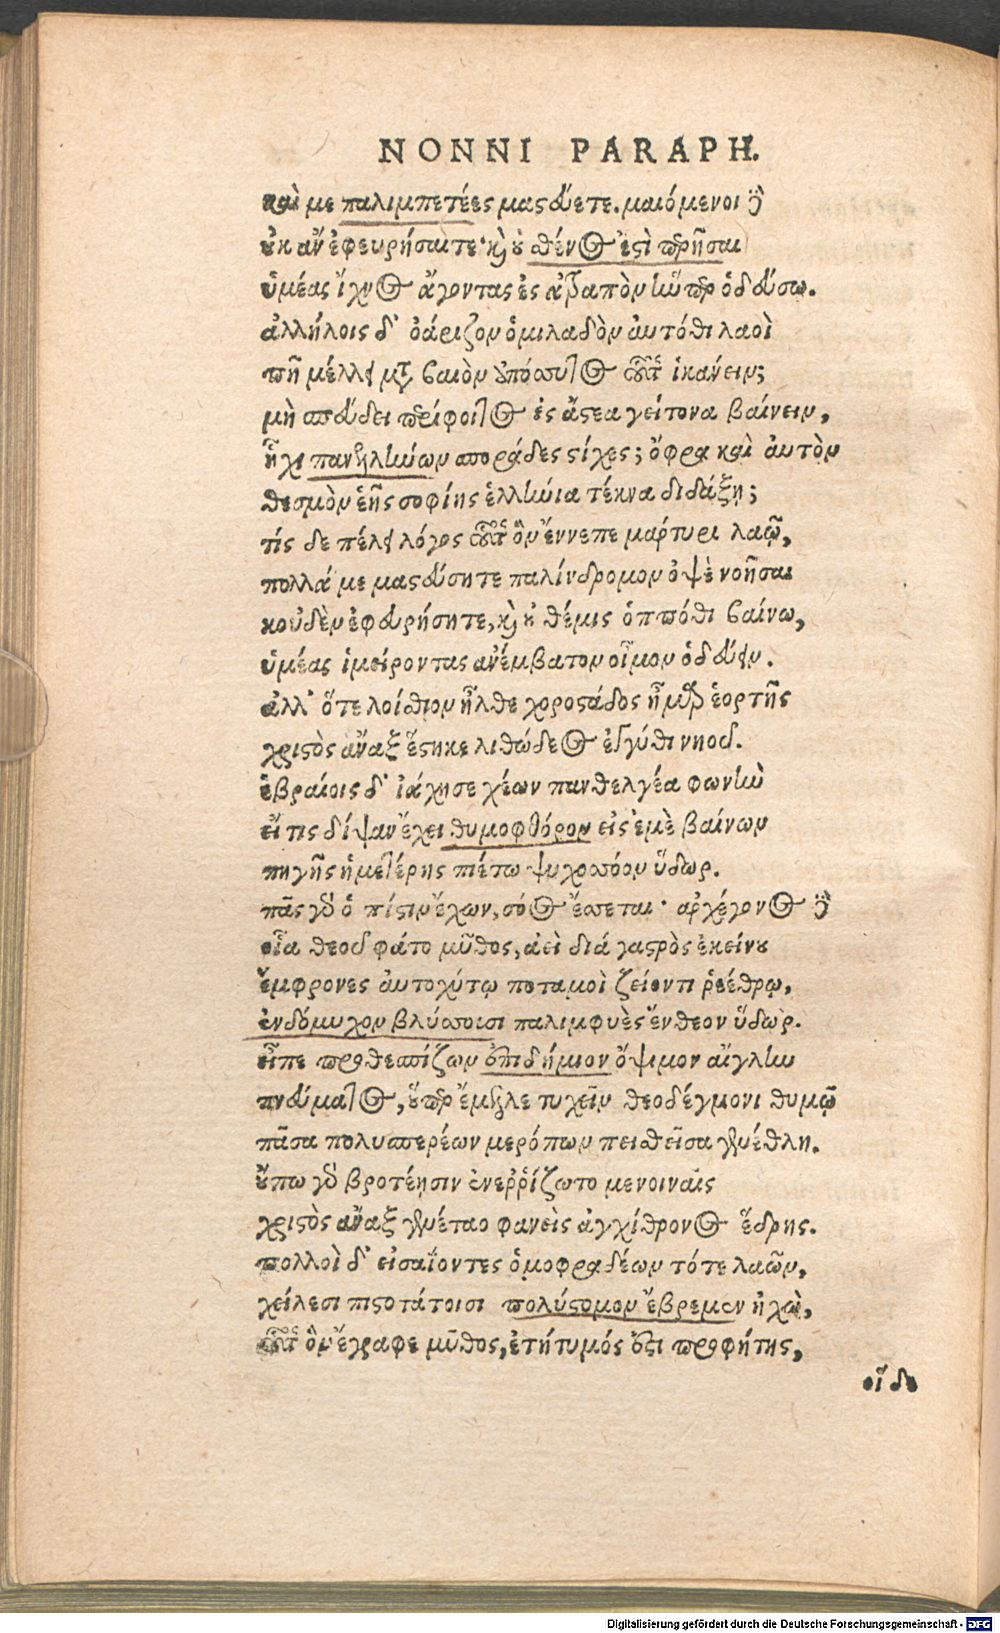 NONNI PARAPH.
καὶ με παλιμπετέες μαστεύετε. μαιόμενοι δὲ
οὐκ ἂν ἐφευρήσαιτε· καὶ οὐ σθένος ἐστὶ περῆσαι
ὑμέας ἴχνος ἄγοντας ἐς ἀτραπὸν ἥνπερ ὁδεύσω.
ἀλλήλοις δ' ὀάριζον ὁμιλαδὸν αὐτόθι λαοὶ
πῆ μέλλει μετὰ βαιὸν ὑπόσυτος οὗτος ἱκάνειν;
μὴ σπεύδει περίφοιτος ἐς ἄστεα γείτονα βαίνειν,
ἧχι πανελλήνων σποράδες στίχες; ὄφρα καὶ αὐτὸν
θεσμὸν ἑῆς σοφίης ἑλλήνια τέκνα διδάξῃ;
τίς δε πέλει λόγος οὗτος ὃν ἔννεπε μάρτυρι λαῷ,
πολλά με μαστεύσητε παλίνδρομον ὀψὲ νοῆσαι
κοὐδὲν ἐφευρήσητε, καὶ οὐ θέμις ὁππόθι βαίνω,
ὑμέας ἱμείροντας ἀνέμβατον οἶμον ὁδεύειν.
ἀλλ' ὅτε λοίσθιον ἦλθε χοροστάδος ἦμαρ ἑορτῆς
χριστὸς ἄναξ ἕστηκε λιθώδεος ἐγγύθι νηοῦ.
ἑβραίοις δ' ἰάχησε χέων πανθελγέα φωνὴν
εἴ τις δίψαν ἔχει θυμοφθόρον εἰς ἐμὲ βαίνων
πηγῆς ἡμετέρης πιέτω ψυχοσόον ὕδωρ.
πᾶς γὰρ ὁ πίστιν ἔχων, σόος ἔσσεται· ἀρχέγονος δὲ
οἷα θεοῦ φάτο μῦθος, ἀεὶ διὰ γαστρὸς ἐκείνου
ἔμφρονες αὐτοχύτῳ ποταμοὶ ζείοντι ῥεέθρῳ,
ἐνδόμυχον βλύσουσι παλιμφυὲς ἔνθεον ὕδωρ.
εἶπε προθεσπίζων ἐπιδήμιον ὄψιμον αἴγλην
πνεύματος, οὗπερ ἔμελλε τυχεῖν θεοδέγμονι θυμῷ
πᾶσα πολυσπερέων μερόπων πεισθεῖσα γενέθλη.
οὔπω γὰρ βροτέῃσιν ἐνεῤῥίζωτο μενοιναῖς
χριστὸς ἄναξ γενέταο φανεὶς ἀγχίθρονος ἕδρης.
πολλοὶ δ' εἰσαΐοντες ὁμοφραδέων τότε λαῶν,
χείλεσι πιστοτάτοισι πολύστομον ἔβρεμον ἠχὼ,
οὗτος ὃν ἔγραφε μῦθος, ἐτήτυμός ἐστι προφήτης,
οἱ δὲ
Digitalisierung gefördert durch die Deutsche Forschungsgemeinschaft - DFG